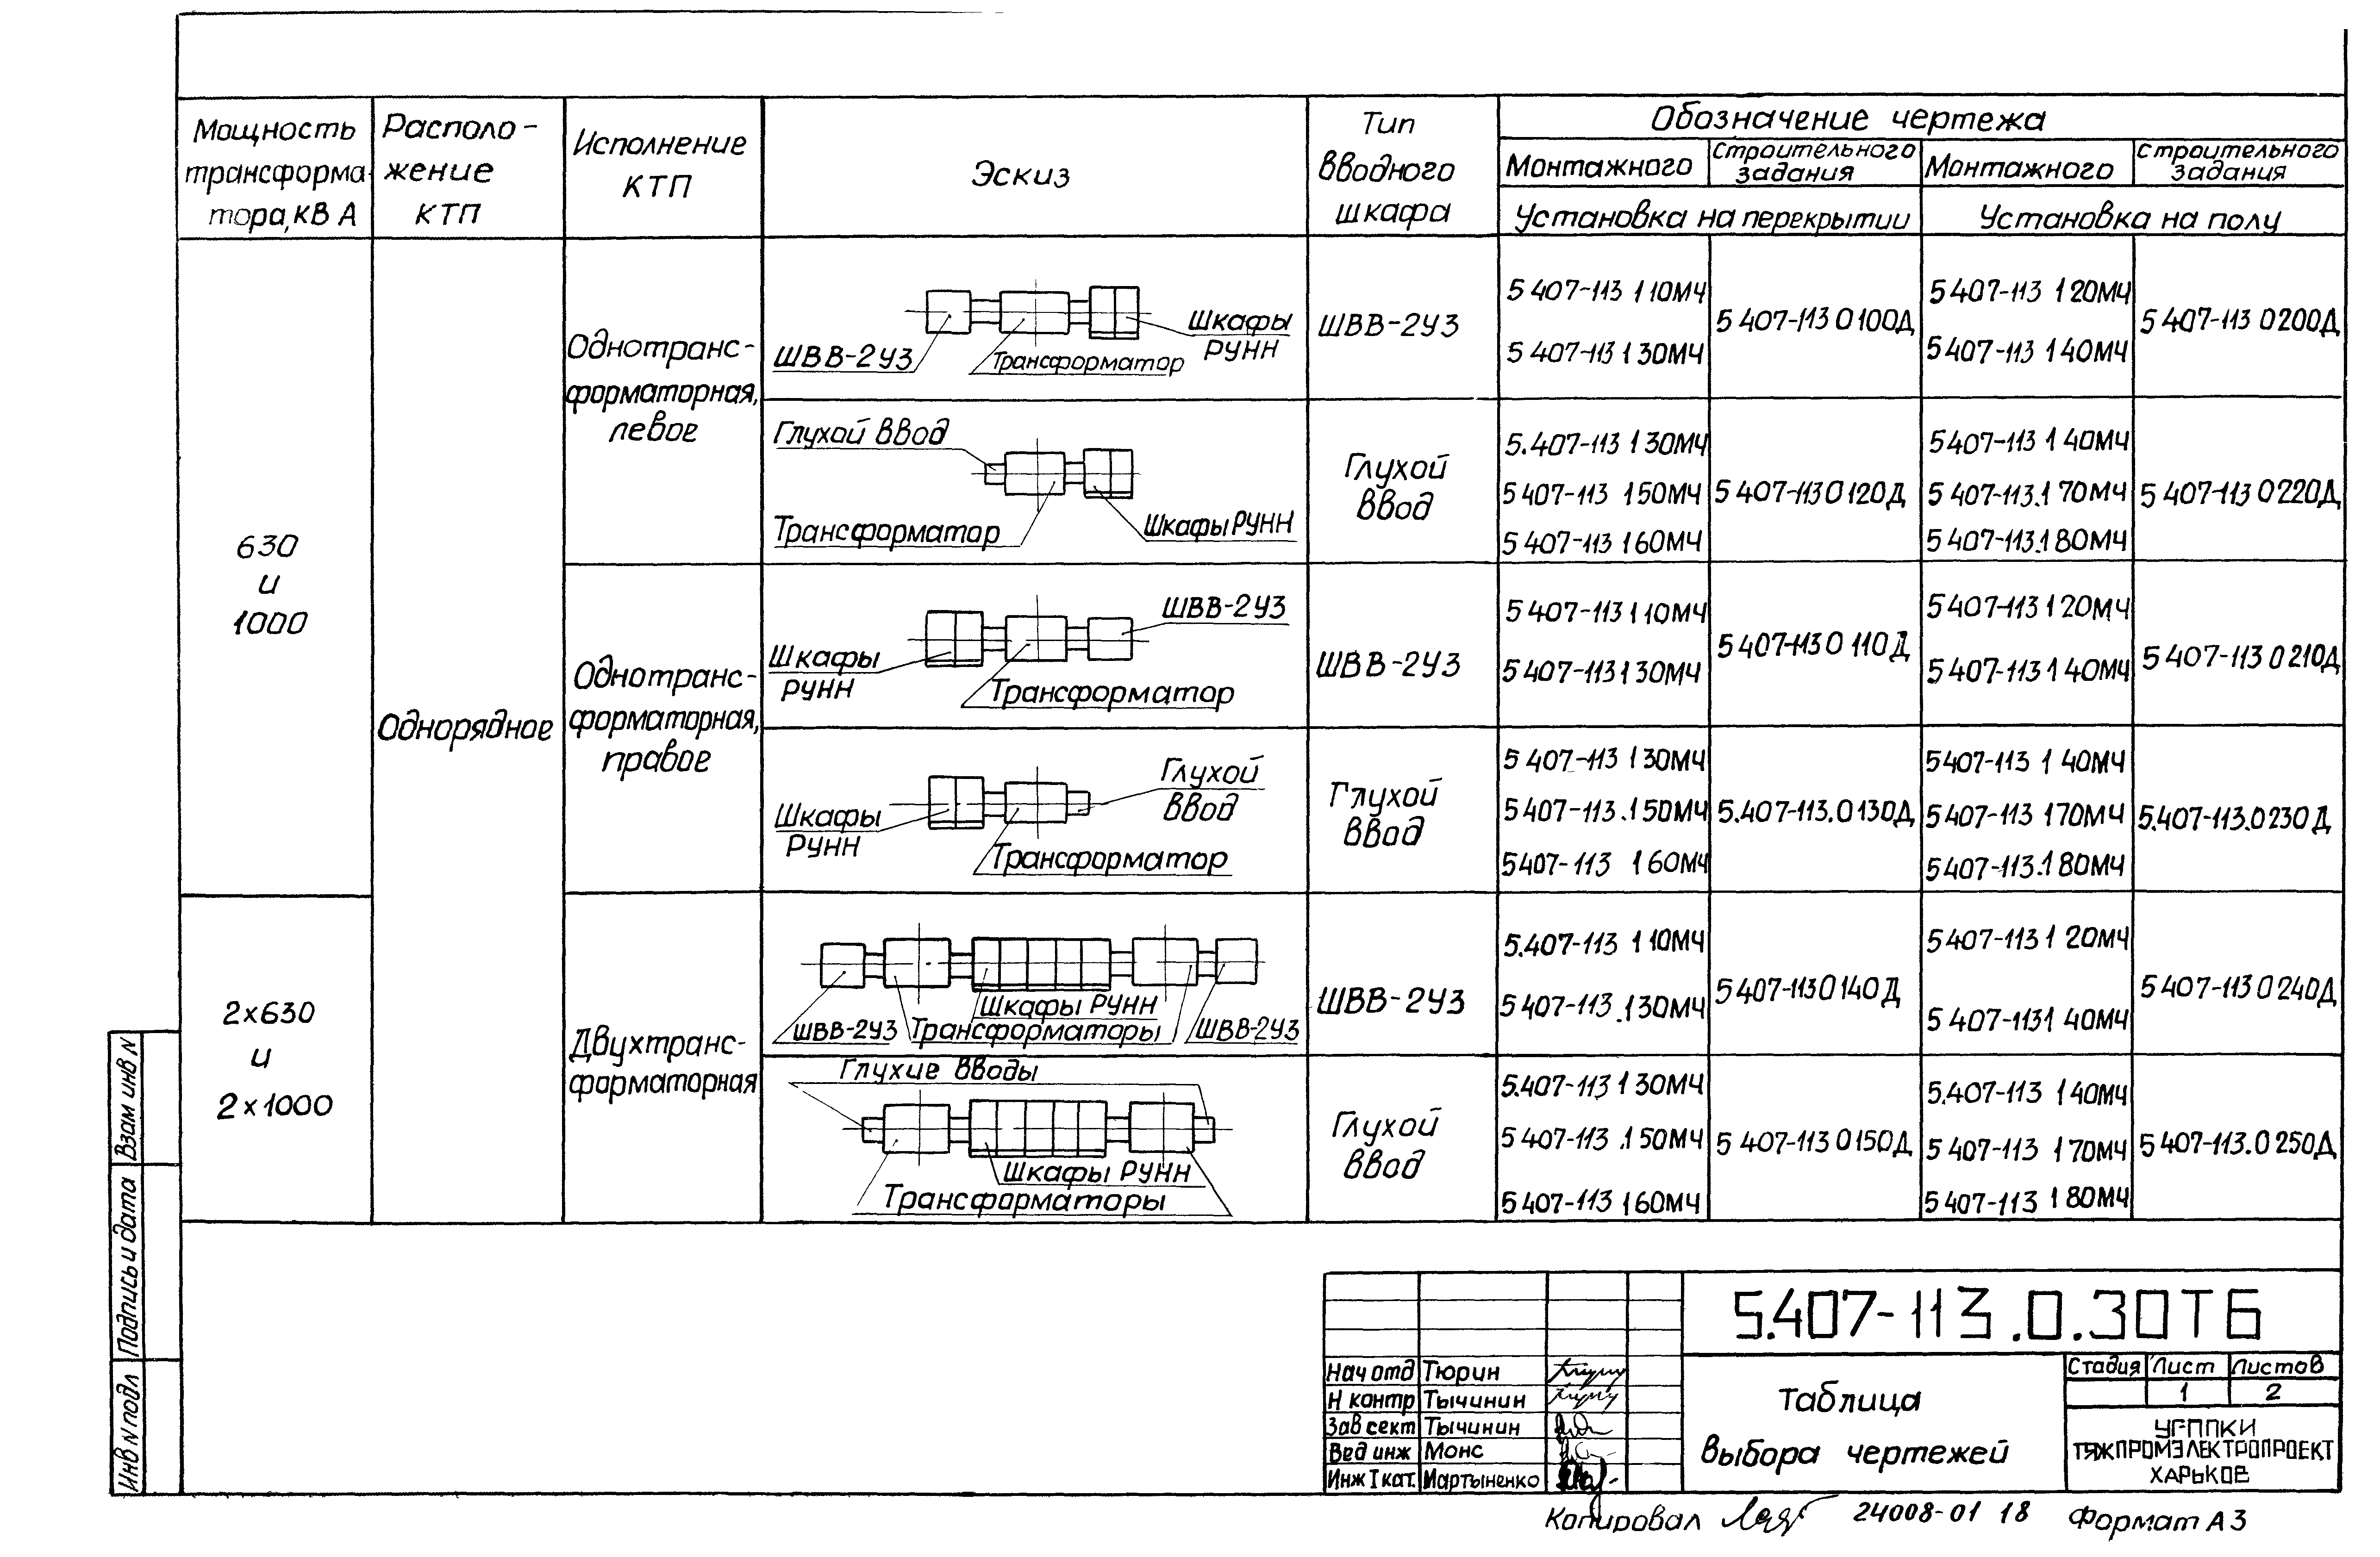 Мощность трансформа-тора, кВ А
Располо-жение КТП
Исполнение КТП
Эскиз
Тип вводного шкафа
Обозначение чертежа
Монтажного
Строительного задания
Монтажного
Строительного задания
Установка на перекрытии
Установка на полу
630 и 1000
Однорядное
Однотранс-форматорная, левое
ШВВ-2У3
Трансформатор
Шкафы РУНН
ШВВ-2У3
5 407-113 1 10МЧ
5 407-113 1 30МЧ
5 407-113 0 100Д
5 407-113 1 20МЧ
5 407-113 1 40МЧ
5 407-113 0 200Д
Глухой ввод
Трансформатор
Шкафы РУНН
Глухой ввод
5.407-113 1 30МЧ
5 407-113 1 50МЧ
5 407-113 1 60МЧ
5 407-113 0 120Д
5407-113 1 40МЧ
5 407-113.1 70МЧ
5 407-113.1 80МЧ
5 407-113 0 220Д
Однотранс-форматорная, правое
Шкафы РУНН
Трансформатор
ШВВ-2У3
ШВВ-2У3
5 407-113 1 10МЧ
5 407-113 1 30МЧ
5 407-113 0 110Д
5407-113 1 20МЧ
5 407-113 1 40МЧ
5 407-113 0 210Д
Шкафы РУНН
Трансформатор
Глухой ввод
Глухой ввод
5 407-113 1 30МЧ
5 407-113.1 50МЧ
5407-113 1 60МЧ
5.407-113.0 130Д
5407-113 1 40МЧ
5 407-113 1 70МЧ
5 407-113.1 80МЧ
5.407-113.0 230Д
2х630 и 2х1000
Двухтранс-форматорная
ШВВ-2У3
Трансформаторы
Шкафы РУНН
ШВВ-2У3
ШВВ-2У3
5.407-113 1 10МЧ
5 407-113.1 30МЧ
5 407-113 0 140Д
5407-113 1 20МЧ
5 407-113 1 40МЧ
5 407-113 0 240Д
Глухие вводы
Шкафы РУНН
Трансформаторы
Глухой ввод
5.407-113 1 30МЧ
5 407-113.1 50МЧ
5 407-113 1 60МЧ
5 407-113 0 150Д
5.407-113 1 40МЧ
5 407-113 1 70МЧ
5 407-113 1 80МЧ
5 407-113.0 250Д
Взам инв N
Подпись и дата
Инв N подл
5.407-113.0.30ТБ
Нач отд Тюрин
Н контр Тычинин
Зав сект Тычинин
Вед инж Монс
Инж I кат. Мартыненко
Таблица
выбора чертежей
Стадия Лист Листов
1 2
УГППКИ
ТЯЖПРОМЭЛЕКТРОПРОЕКТ
ХАРЬКОВ
Копировал 24008-01 18 Формат А3